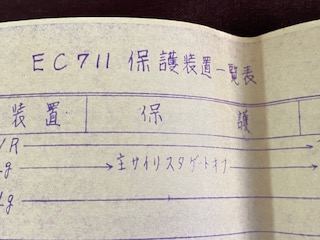 EC711 保護装置一覧表
装置 保護
VR
主サイリスタゲートオフ